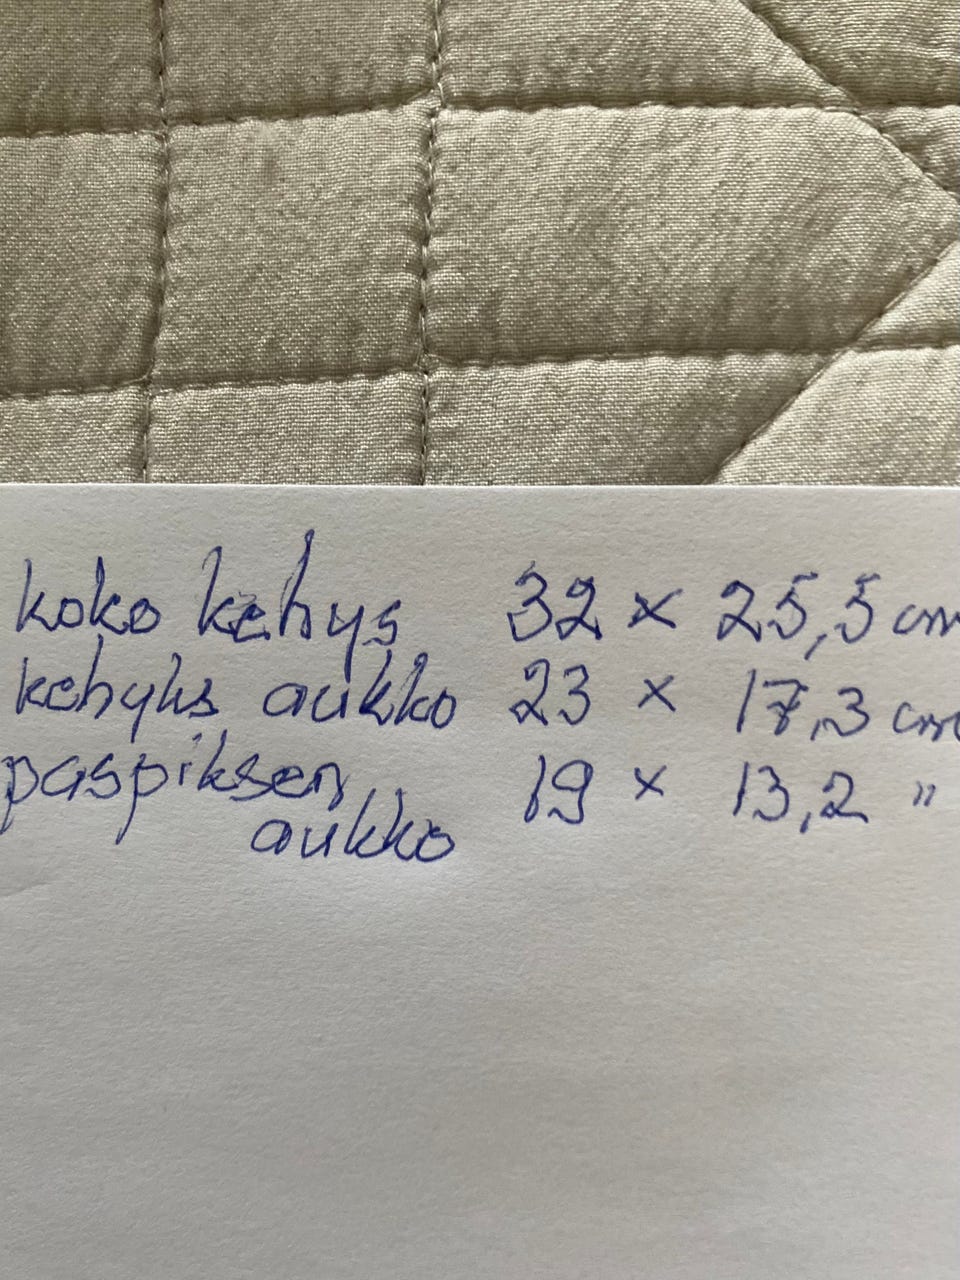 koko kehys 32 x 25,5 cm
kehyks aukko 23 x 17,3 cm
paspiksen 19 x 13,2 "
aukko